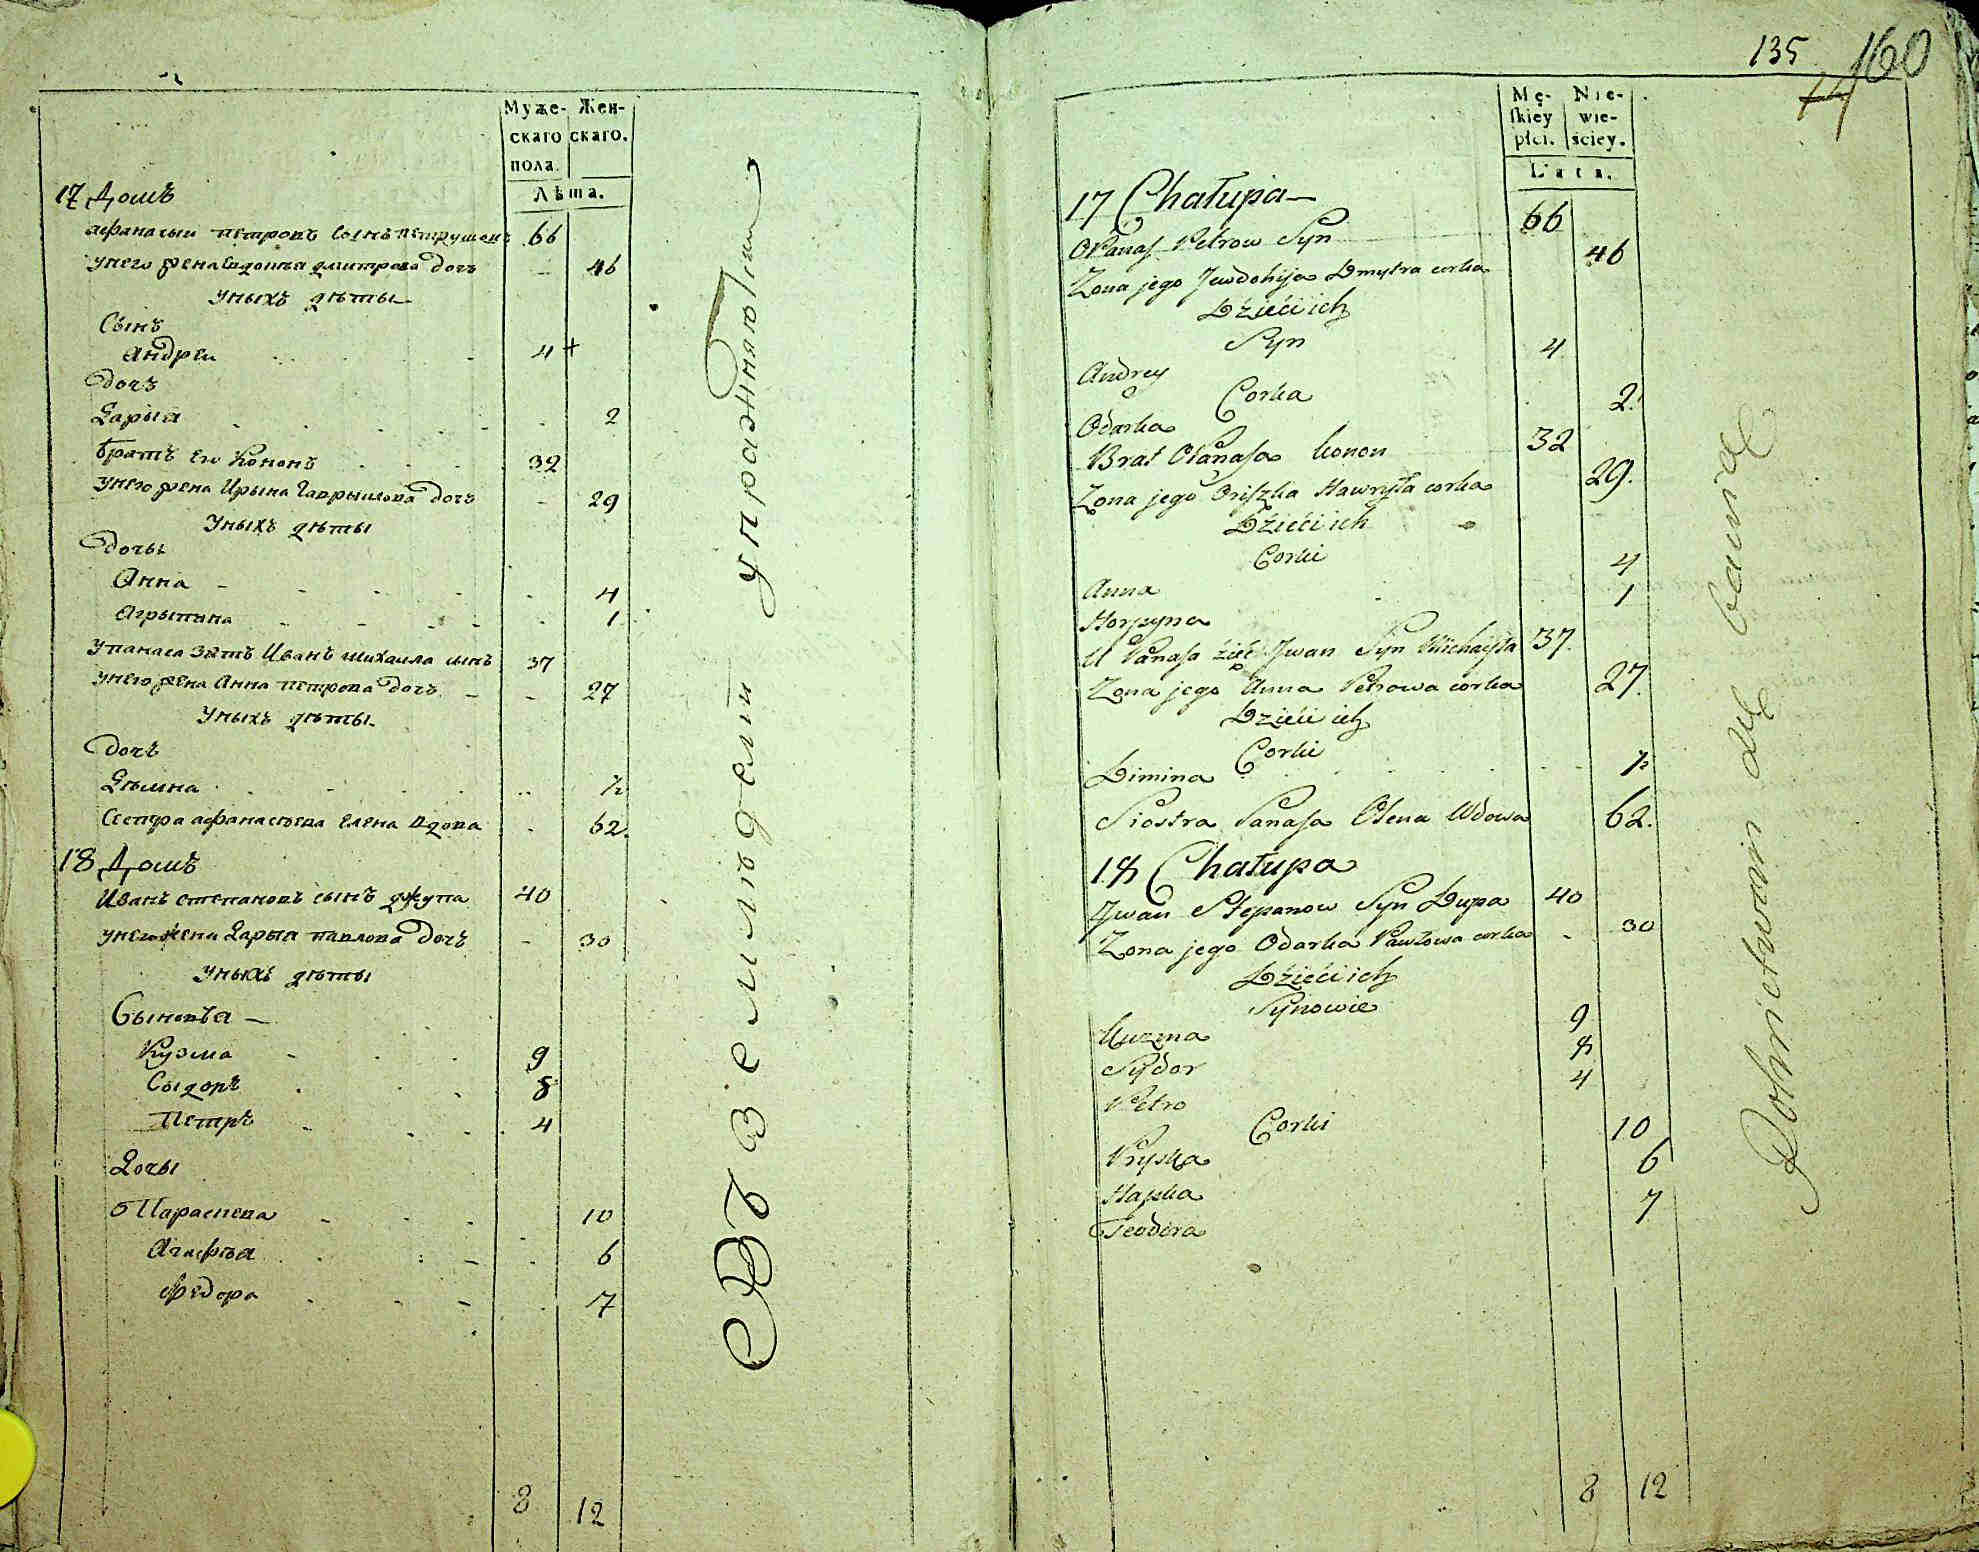 Муже- Жен-
скаго скаго.
пола.
Лѣта.
17 Домъ
Афанасыи петровъ сынъ петрушенъ 66
унего жена Евдокия дмитрова дочъ - 46
уныхъ дѣты
Сынъ
Андреи 4 +
дочъ
Дарыя 2
братъ Его Кононъ 32
унего жена Ирына Гаврылова дочъ - 29
уныхъ дѣты
дочы
Анна - 4
Агрыпина 1
упанаса зять Иванъ михаила сынъ 37
унего жена Анна петрова дочъ - - 27
уныхъ дѣты
дочъ
Дѣмина ½
Сестра афанасьева Елена вдова 62.
18 Домъ
Иванъ степановъ сынъ джупа 40
унего жена Дарыя павлова дочъ - 30
уныхъ дѣты
Сыновья —
Кузма 9
Сыдоръ 8
Петръ 4
Дочы
Параскева 10
Агафья 6
Федора 7
8 12
Въ земледелiи упражняютъ
135
160
Mę- Nie-
skiey wie-
płci. ściey.
Lata.
17 Chałupa —
Opanas Petrow Syn 66
Zona jego Jewdokija Dmytra corka 46
Dzieci ich
Syn
Andrey 4
Corka
Odarka 2.
Brat Opanasa Konon 32
Zona jego Oriszka Hawryła corka 29.
Dzieci ich
Corki
Anna 4
Horpyna 1
U Panasa zięć Jwan Syn Michayła 37.
Zona jego Anna Petrowa corka 27.
Dzieci ich
Corki
Dimina ½
Siostra Panasa Olena Wdowa 62.
18 Chałupa
Jwan Stepanow Syn Dupa 40
Zona jego Odarka Pawłowa corka - 30
Dzieci ich
Synowie
Kuzma 9
Sydor 8
Petro 4
Corki
Pryska 10
Hapka 6
Teodora 7
8 12
Rolnictwem się bawią